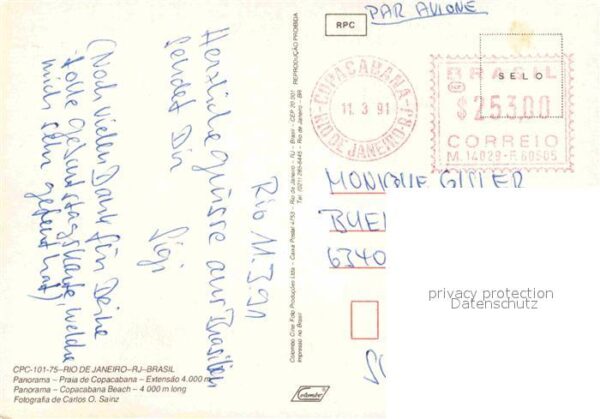 PAR AVIONE
RPC
SELO
COPACABANA-RJ
RIO DE JANEIRO
11. 3 91
BRASIL
$253,00
CORREIO
M.14029-F.60505
REPRODUÇÃO PROIBIDA
Herzliche Grüsse aus Brasilien
sendet Dir
Sigi
Rio 11.3.91
(Noch vielen Dank für Deine
tolle Geburtstagskarte, welche
mich sehr gefreut hat)
MONIQUE
6340
privacy protection
Datenschutz
Colombo Cine Foto Produções Ltda - Caixa Postal 4753 - Rio de Janeiro - RJ - Brasil - CEP 20.001
Tel: (021) 285-6445 - Rio de Janeiro - BR
Impresso no Brasil
CPC-101-75-RIO DE JANEIRO-RJ-BRASIL
Panorama - Praia de Copacabana - Extensão 4.000 m
Panorama - Copacabana Beach - 4 000 m long
Fotografia de Carlos O. Sainz
Colombo